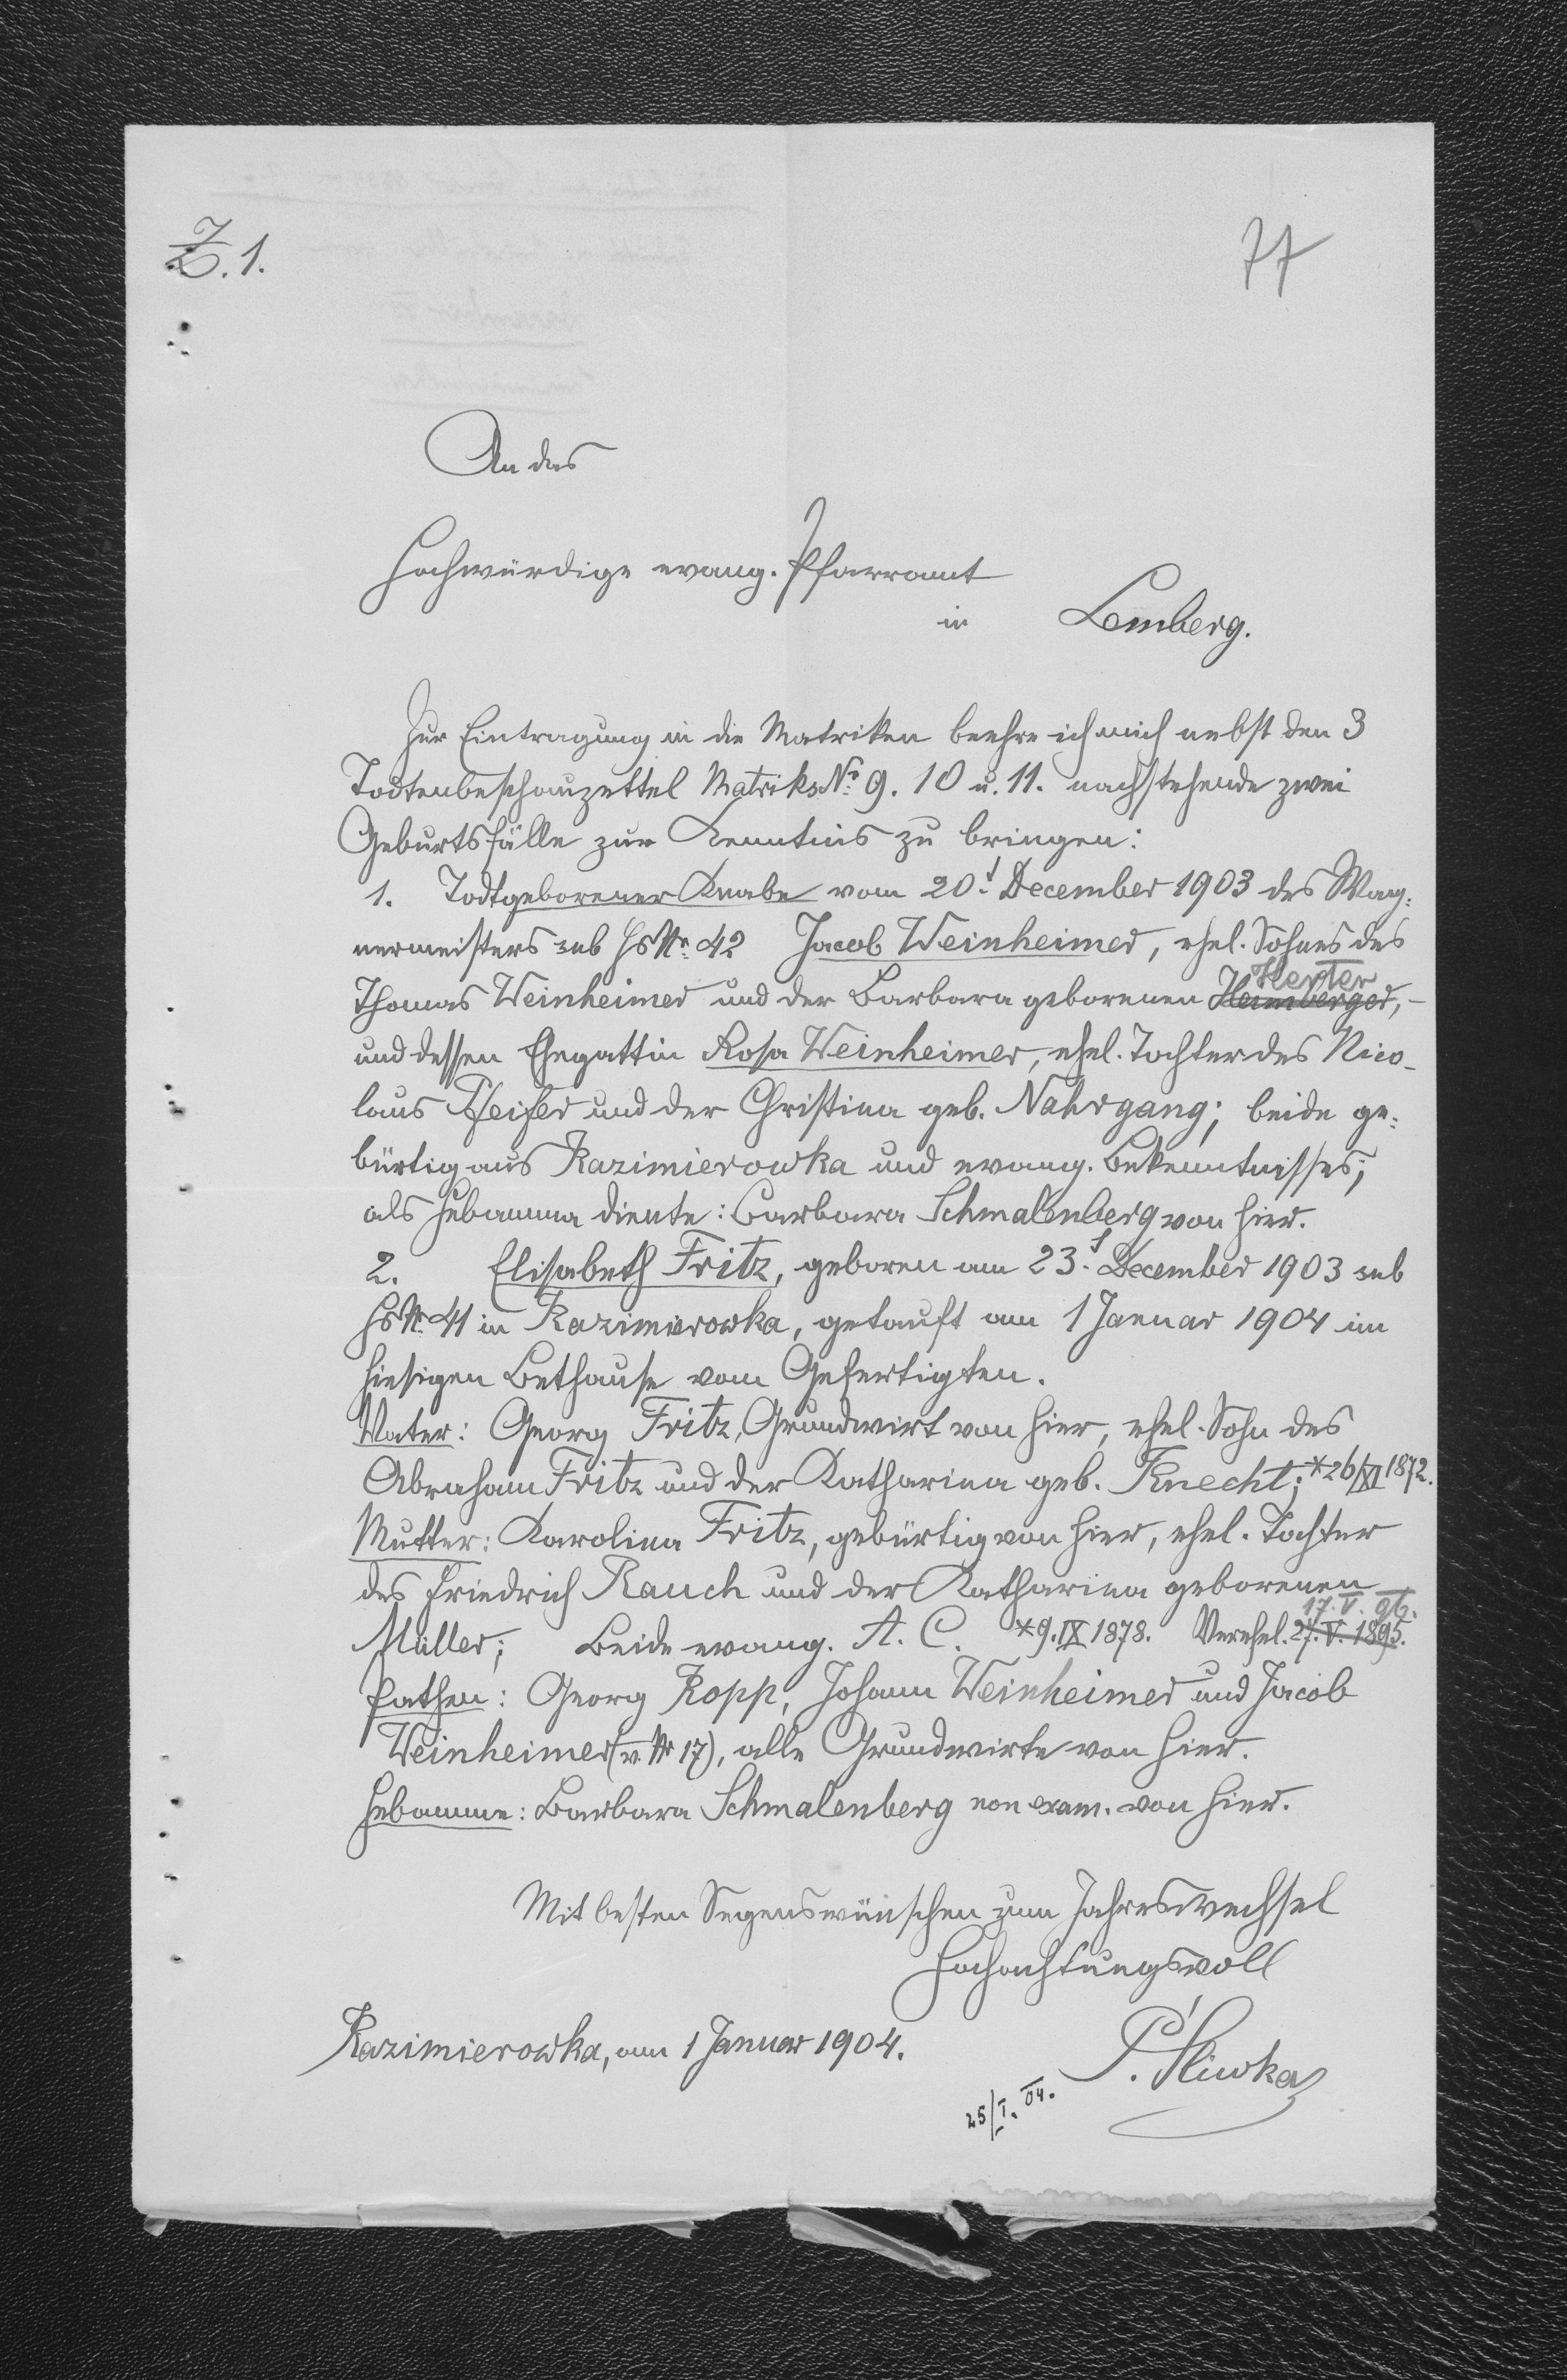 Z. 1.
77
An das
Hochwürdige evang. Pfarramt
in Lemberg.
Zur Eintragung in die Matriken beehre ich mich nebst den 3
Todtenbeschauzettel Matriks No 9. 10 u. 11. nachstehende zwei
Geburtsfälle zur Kenntnis zu bringen:
1. Todtgeborener Knabe vom 20. December 1903 des Wag:
nermeisters sub Hs Nr. 42 Jacob Weinheimer, ehel. Sohnes des
Herter
Thomas Weinheimer und der Barbara geborenen Heimberger, -
und dessen Ehegattin Rosa Weinheimer, ehel. Tochter des Nico-
laus Pfeifer und der Christina geb. Nahrgang; beide ge:
bürtig aus Kazimierowka und evang. Bekenntnisses;
als Hebamme diente: Barbara Schmalenberg von hier.
2. Elisabeth Fritz, geboren am 23. December 1903 sub
Hs Nr. 41 in Kazimierowka, getauft am 1 Januar 1904 im
hiesigen Bethause vom Gefertigten.
Vater: Georg Fritz, Grundwirt von hier, ehel. Sohn des
Abraham Fritz und der Katharina geb. Knecht; *26/XI 1872.
Mutter: Karolina Fritz, gebürtig von hier, ehel. Tochter
des Friedrich Rauch und der Katharina geborenen
17. V. 96.
Müller; Beide evang. A. C. *9. IX 1878. Verehel. 27. V. 1895.
Pathen: Georg Kopp, Johann Weinheimer und Jacob
Weinheimer (v. Nr 17), alle Grundwirte von hier.
Hebamme: Barbara Schmalenberg non exam. von hier.
Mit besten Segenswünschen zum Jahreswechsel
Hochachtungsvoll
Kazimierowka, am 1 Januar 1904.
P. Śliwka
25/I. 04.